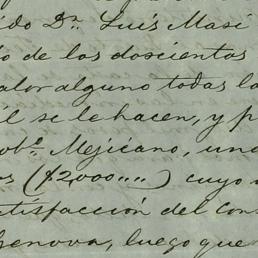 ido Dn. Luis Masi
o de los doscientos
valor alguno todas la
il se le hacen, y p
obno. Mejicano, una
os ($2000,,,,) cuyo
atisfacción del con
enova, luego que